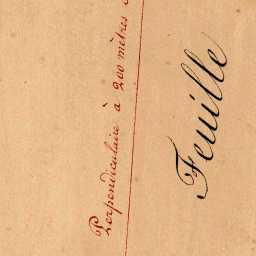 Perpendiculaire à 200 mètres
Feuille